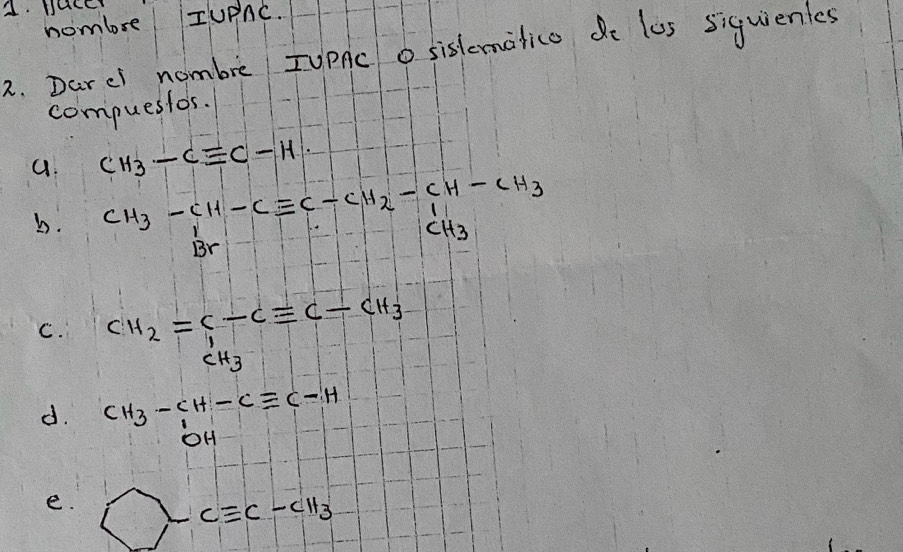 1. Hacer
nombre IUPAC.
2. Dar el nombre IUPAC o sistemático de los siguientes
compuestos.
a. CH3-C≡C-H.
b. CH3-CH-C≡C-CH2-CH-CH3
Br CH3
c. CH2=C-C≡C-CH3
CH3
d. CH3-CH-C≡C-H
OH
e. -C≡C-CH3